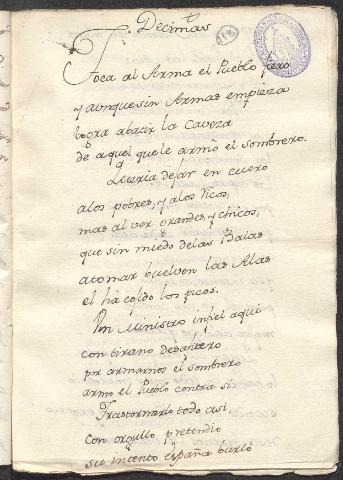 Decimas
118
Toca al Arma el Pueblo fiero
y aunque sin Armas empieza
logra abatir la Caveza
de aquel que le armò el sombrero.
Queria dejar en cuero
a los pobres, y a los Ricos,
mas al ver grandes, y chicos,
que sin miedo de las Balas
a tomar buelven las Alas
el ha cojido los picos.
Un Ministro infiel aqui
con tirano desafuero
por armarnos el sombrero
armo el Pueblo contra si.
Trastornarlo todo asi,
con orgullo pretendio
su intento España burlò